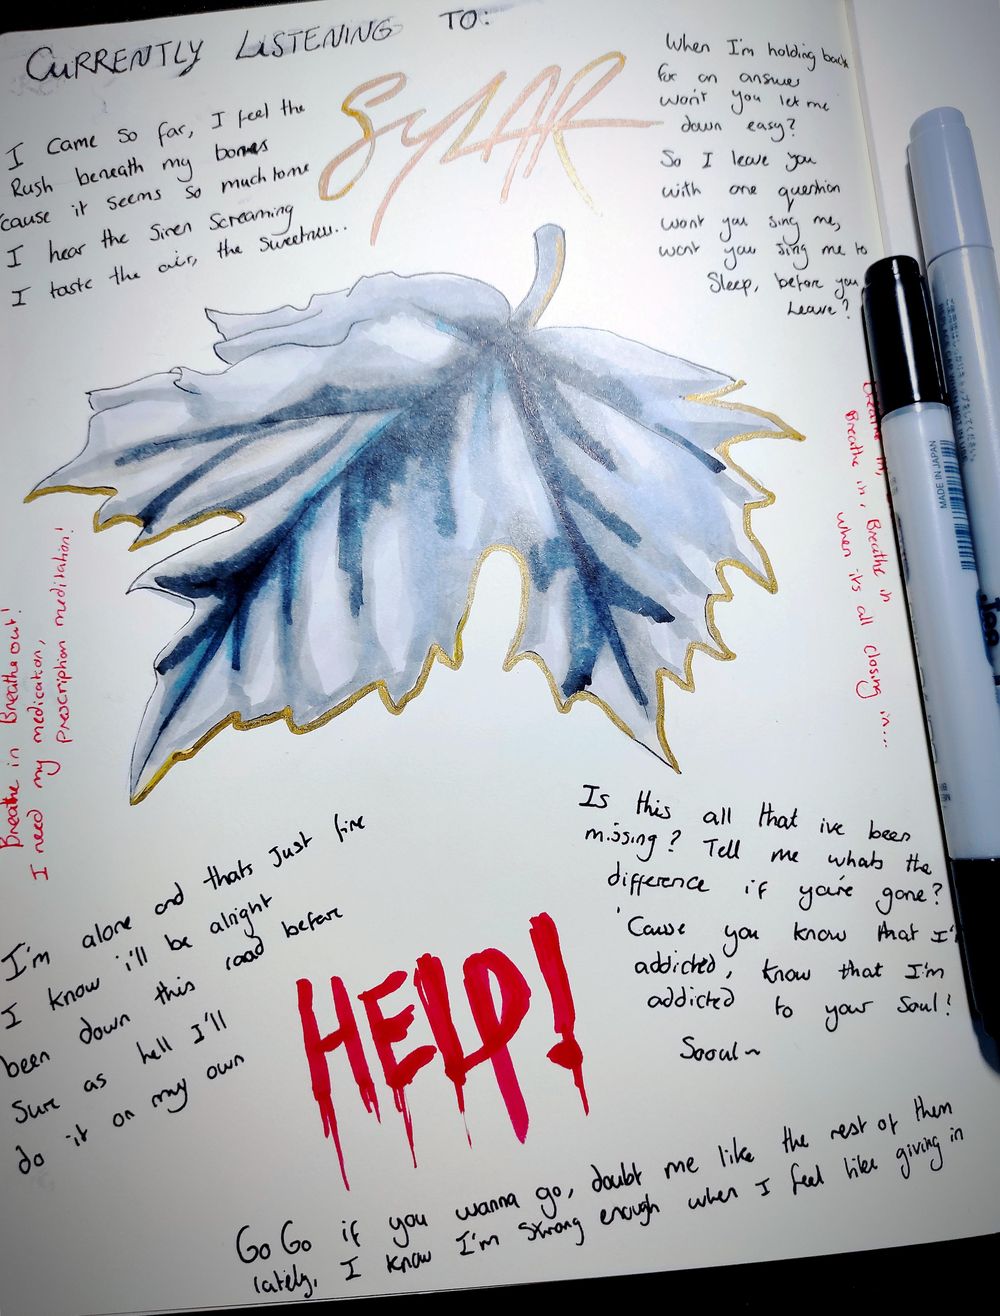 CURRENTLY LISTENING TO:
SYLAR
I came so far, I feel the
Rush beneath my bones
'cause it seems so much to me
I hear the Siren Screaming
I taste the air, the sweetness..
When I'm holding back
for an answer
won't you let me
down easy?
So I leave you
with one question
wont you sing me,
wont you sing me to
Sleep, before you
Leave?
Breathe in,
Breathe in, Breathe in
when its all closing in...
Breathe in Breathe out!
I need my medication,
prescription meditation!
I'm alone and thats just fine
I know i'll be alright
been down this road before
Sure as hell I'll
do it on my own
Is this all that ive been
missing? Tell me whats the
difference if you're gone?
'Cause you know that I'm
addicted, know that I'm
addicted to your Soul!
Sooul~
HELP!
Go Go if you wanna go, doubt me like the rest of them
lately, I know I'm strong enough when I feel like giving in
MADE IN JAPAN